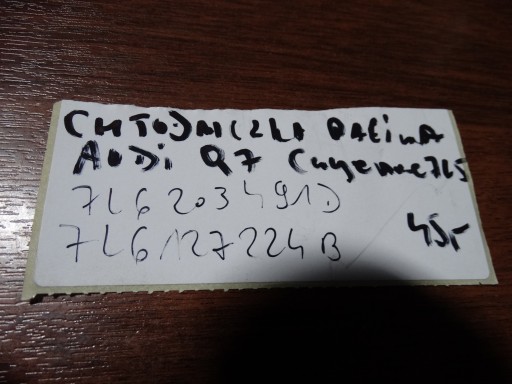 CHŁODNICZKA PALIWA
AUDI Q7 Cayenne 7L5
7L6203491D
7L6127224B
45,-